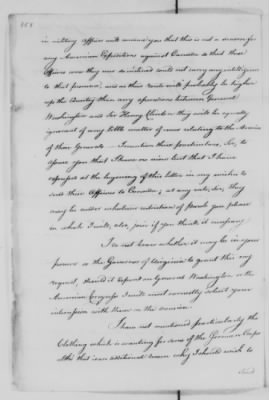 in military affairs will convince you that this is not a season for
any American Expeditions against Canada so that these
Officers were they ever so inclined could not carry any intelligence
to that province; and as their route will probably be higher
up the Country than any operations between General
Washington and Sir Henry Clinton they will be equally
ignorant of any little matter of news relating to the Armies
of those Generals — I mention these particulars, Sir, to
assure you that I have no view but that I have
expressed at the beginning of this letter in my wishes to
send these Officers to Canada; at any rate, Sir, they
may be under whatever restriction of parole you please
in which I will, also, join if you think it necessary
I do not know whether it may be in your
power or the Governor of Virginia to grant this my
request, should it depend on General Washington, or the
American Congress I will most earnestly solicit your
intercession with them on the occasion.
I have not mentioned particularly the
Clothing which is wanting for some of the German Corps
altho that is an additional reason why I should wish to
send